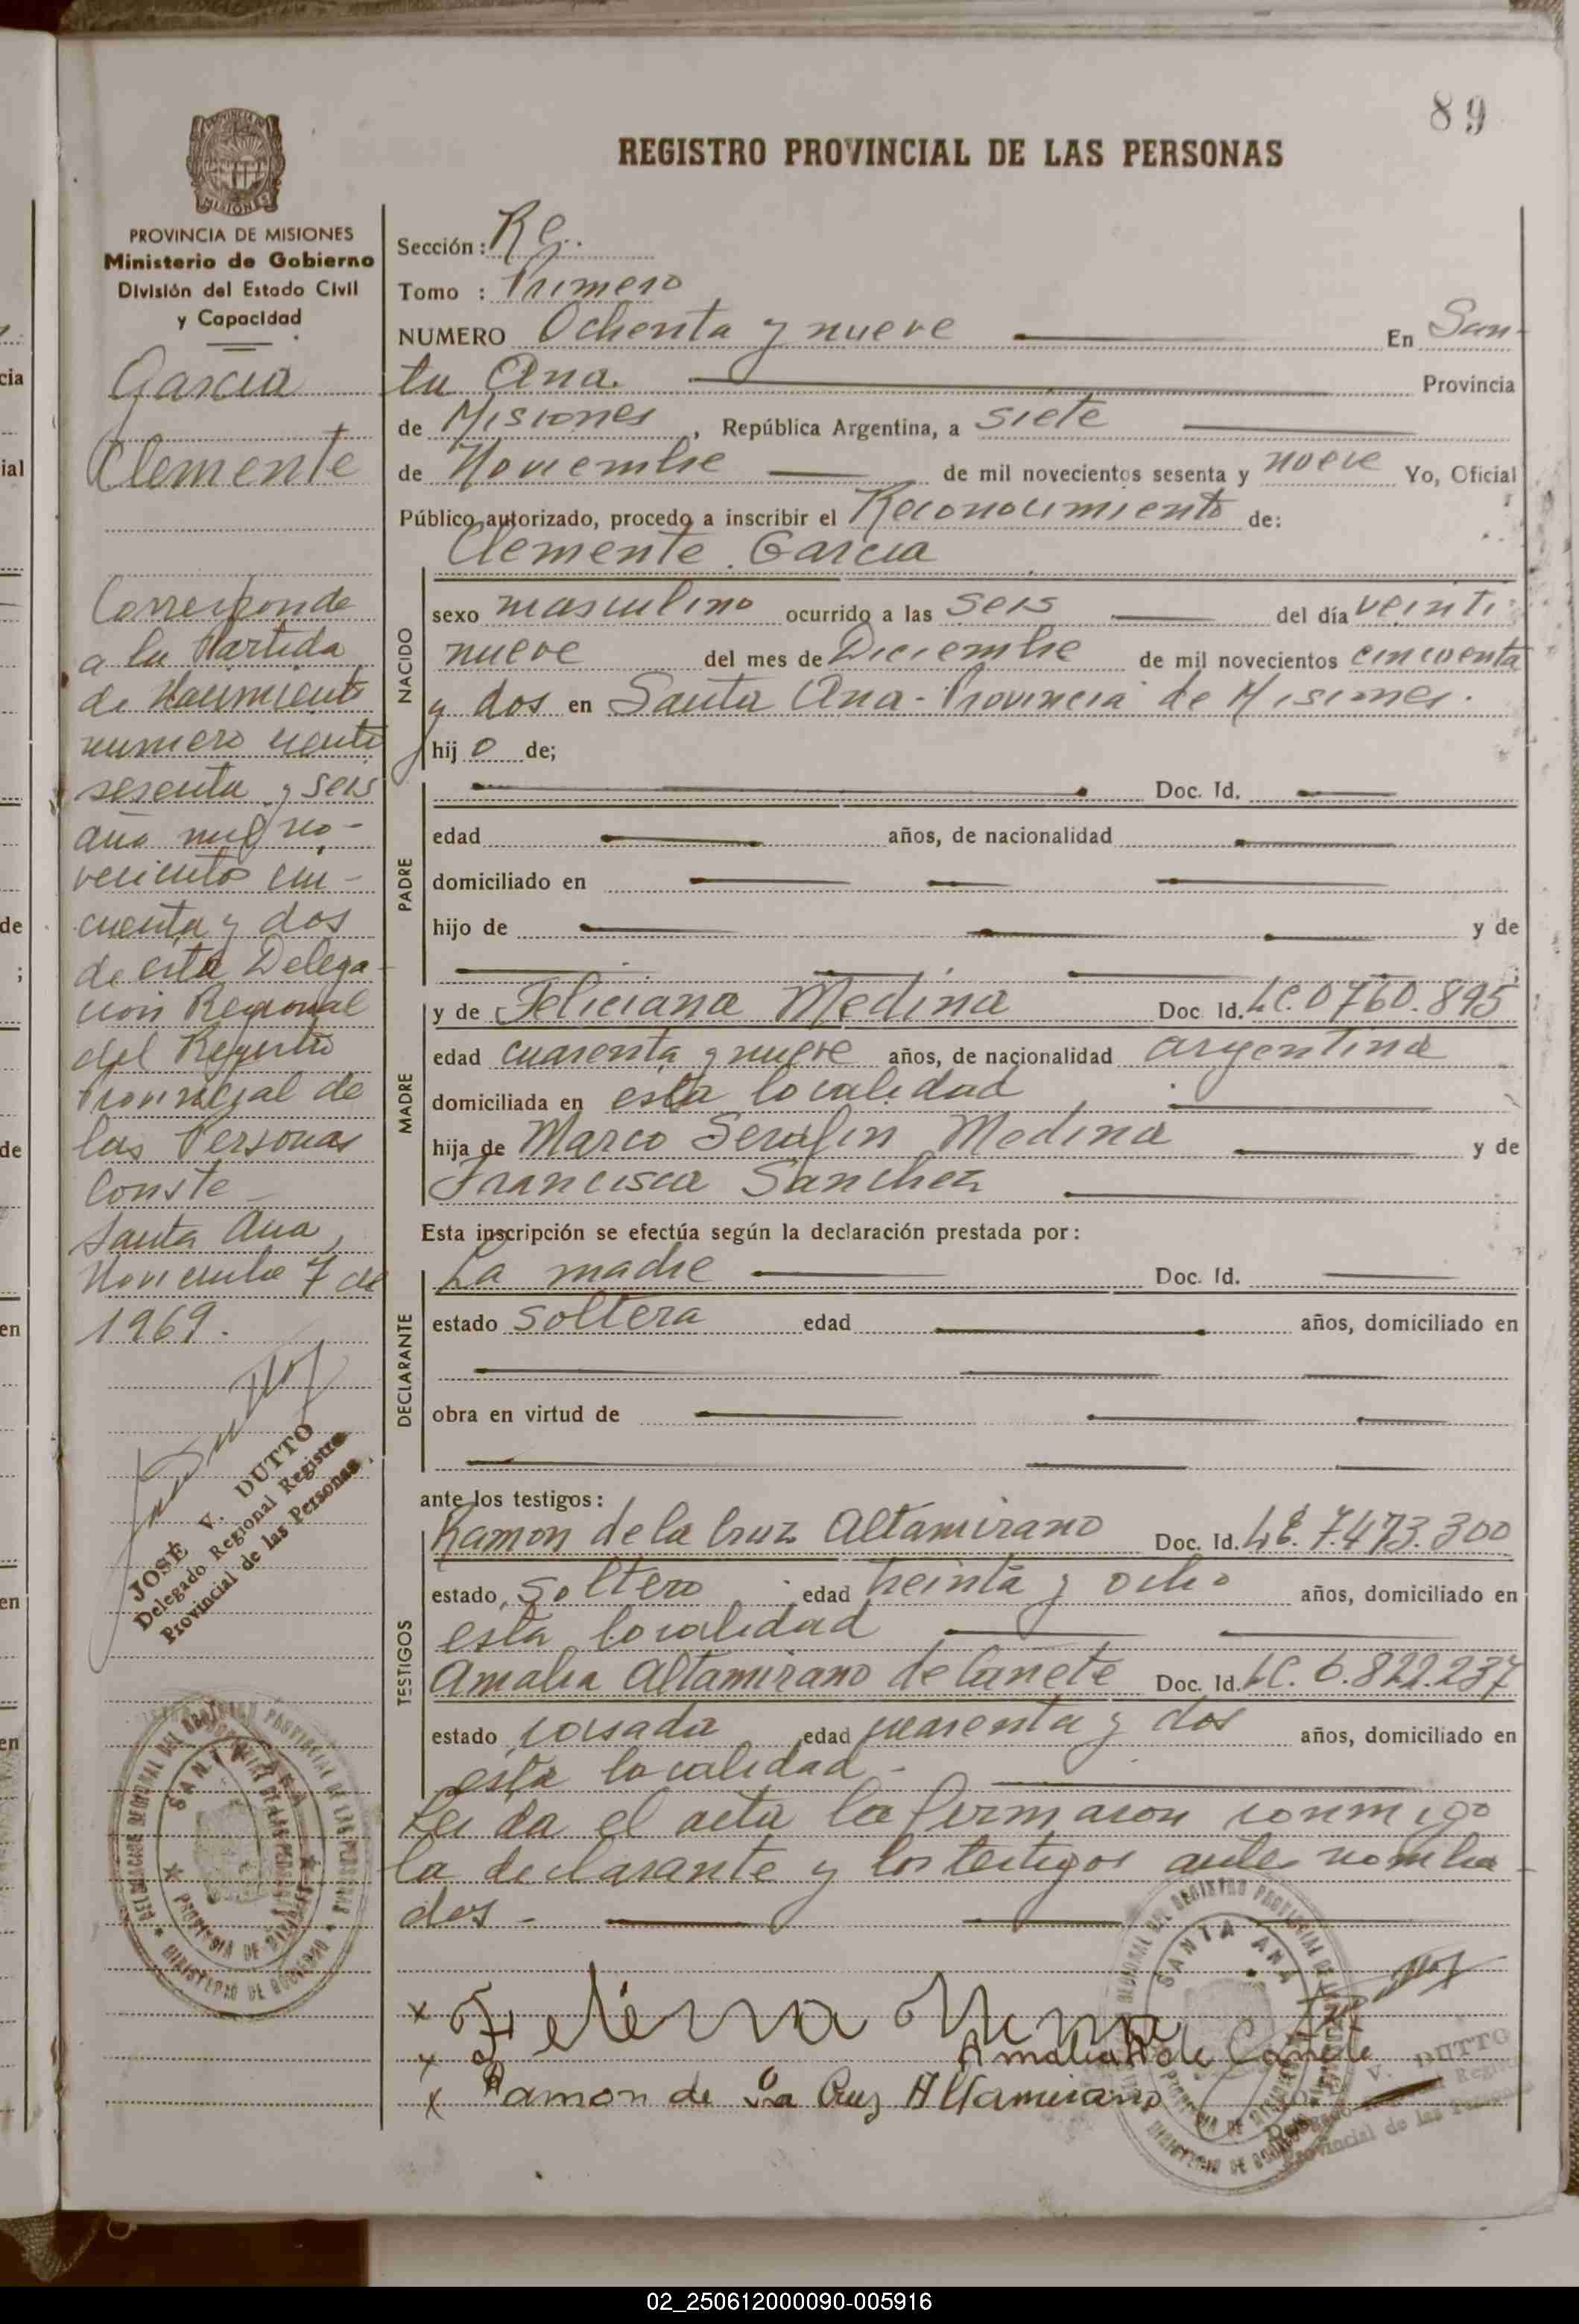 89
REGISTRO PROVINCIAL DE LAS PERSONAS
PROVINCIA DE MISIONES
Ministerio de Gobierno
División del Estado Civil
y Capacidad
Garcia
Clemente
Corresponde
a la Partida
de Nacimiento
numero ciento
sesenta y seis
año mil no-
vecientos cin-
cuenta y dos
de esta Delega-
cion Regional
del Registro
Provincial de
las Personas
Conste
Santa Ana,
Noviembre 7 de
1969.
JOSÉ V. DUTTO
Delegado Regional Registro
Provincial de las Personas
Sección: Re..
Tomo : Primero
NUMERO Ochenta y nueve En San-
ta Ana. Provincia
de Misiones, República Argentina, a siete
de Noviembre de mil novecientos sesenta y nueve Yo, Oficial
Público autorizado, procedo a inscribir el Reconocimiento de:
Clemente Garcia
NACIDO
sexo masculino ocurrido a las seis del día veinti
nueve del mes de Diciembre de mil novecientos cincuenta
y dos en Santa Ana - Provincia de Misiones.
hij o de;
PADRE
Doc. Id.
edad años, de nacionalidad
domiciliado en
hijo de y de
MADRE
y de Feliciana Medina Doc. Id. LC. 0760.895
edad cuarenta y nueve años, de nacionalidad argentina
domiciliada en esta localidad
hija de Marco Serafin Medina y de
Francisca Sanchez
Esta inscripción se efectúa según la declaración prestada por:
DECLARANTE
La madre Doc. Id.
estado soltera edad años, domiciliado en
obra en virtud de
ante los testigos:
TESTIGOS
Ramon de la Cruz Altamirano Doc. Id. LE. 7.473.300
estado soltero edad treinta y ocho años, domiciliado en
esta localidad
Amalia Altamirano de Cañete Doc. Id. LC. 6.822.237
estado casada edad cuarenta y dos años, domiciliado en
esta localidad -
Leida el acta la firmaron conmigo
la declarante y los testigos antes nombra-
dos -
x
x Amalia A de Cañete
x Ramon de La Cruz Altamirano
SANTA ANA
V. DUTTO
Provincial de las Personas
02_250612000090-005916